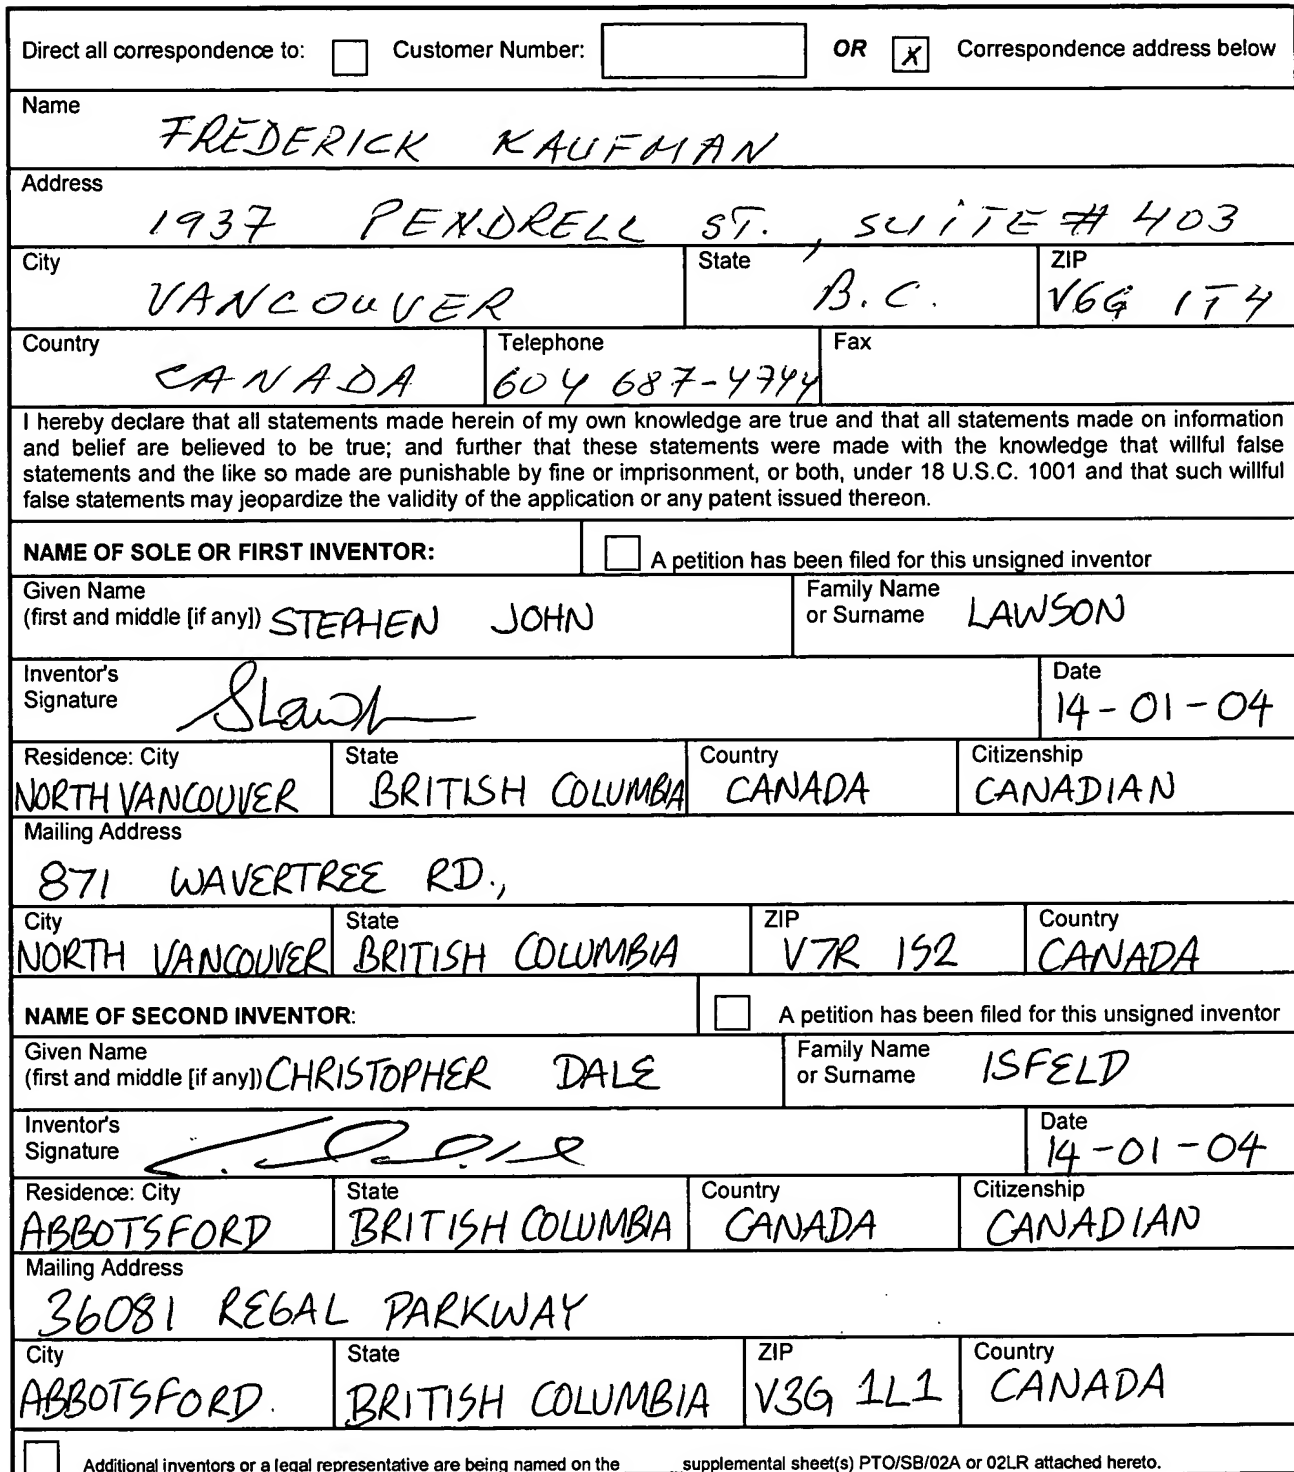 Direct all correspondence to: Customer Number: OR X Correspondence address below
Name
FREDERICK KAUFMAN
Address
1937 PENDRELL ST., SUITE # 403
City State ZIP
VANCOUVER B.C. V6G 1T4
Country Telephone Fax
CANADA 604 687-4744
I hereby declare that all statements made herein of my own knowledge are true and that all statements made on information
and belief are believed to be true; and further that these statements were made with the knowledge that willful false
statements and the like so made are punishable by fine or imprisonment, or both, under 18 U.S.C. 1001 and that such willful
false statements may jeopardize the validity of the application or any patent issued thereon.
NAME OF SOLE OR FIRST INVENTOR: A petition has been filed for this unsigned inventor
Given Name Family Name
(first and middle [if any]) STEPHEN JOHN or Surname LAWSON
Inventor's Date
Signature 14-01-04
Residence: City State Country Citizenship
NORTH VANCOUVER BRITISH COLUMBIA CANADA CANADIAN
Mailing Address
871 WAVERTREE RD.,
City State ZIP Country
NORTH VANCOUVER BRITISH COLUMBIA V7R 1S2 CANADA
NAME OF SECOND INVENTOR: A petition has been filed for this unsigned inventor
Given Name Family Name
(first and middle [if any]) CHRISTOPHER DALE or Surname ISFELD
Inventor's Date
Signature 14-01-04
Residence: City State Country Citizenship
ABBOTSFORD BRITISH COLUMBIA CANADA CANADIAN
Mailing Address
36081 REGAL PARKWAY
City State ZIP Country
ABBOTSFORD. BRITISH COLUMBIA V3G 1L1 CANADA
Additional inventors or a legal representative are being named on the _____ supplemental sheet(s) PTO/SB/02A or 02LR attached hereto.